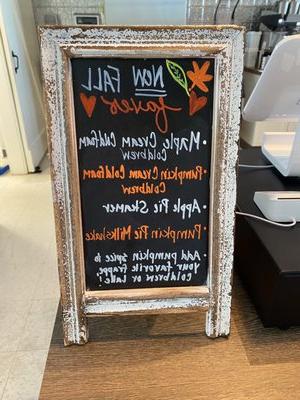 NEW FALL
faves
• Maple Cream Cold foam
Coldbrew
• Pumpkin Cream Cold foam
Coldbrew
• Apple Pie Steamer
• Pumpkin Pie Milkshake
• Add pumpkin spice to
your favorite frappe,
Coldbrew or latte!